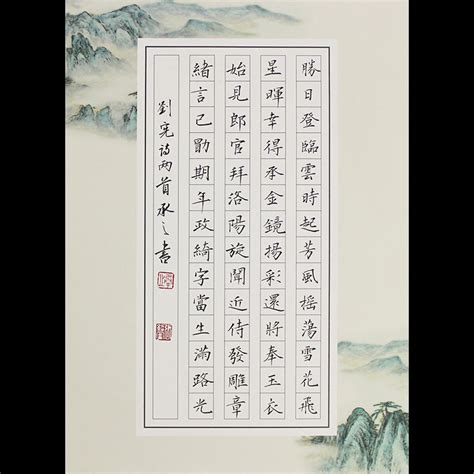 勝日登臨雲時起芳風搖蕩雪花飛
星暉幸得承金鏡揚彩還將奉玉衣
始見郎官拜洛陽旋聞近侍發雕章
緒言已勖期年政綺字當生滿路光
劉憲詩兩首承之書